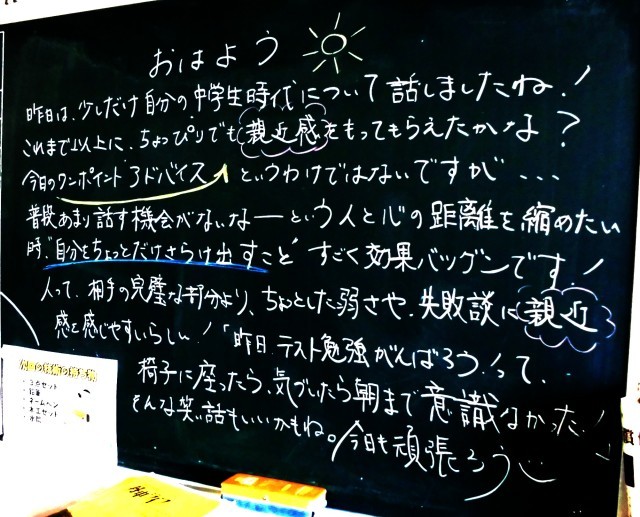 おはよう
昨日は、少しだけ自分の中学生時代について話しましたね！
これまで以上に、ちょっぴりでも親近感をもってもらえたかな？
今日のワンポイントアドバイス というわけではないですが...
普段あまり話す機会がないなーという人と心の距離を縮めたい
時、"自分をちょっとだけさらけ出すこと"すごく効果バツグンです！
人って、相手の完璧な部分より、ちょっとした弱さや、失敗談に親近
感を感じやすいらしい！「昨日、テスト勉強がんばろうって、..
椅子に座ったら、気づいたら朝まで意識なかった！」
そんな笑い話もいいかもね。今日も頑張ろう
・3点セット
・ネームペン
・木工セット